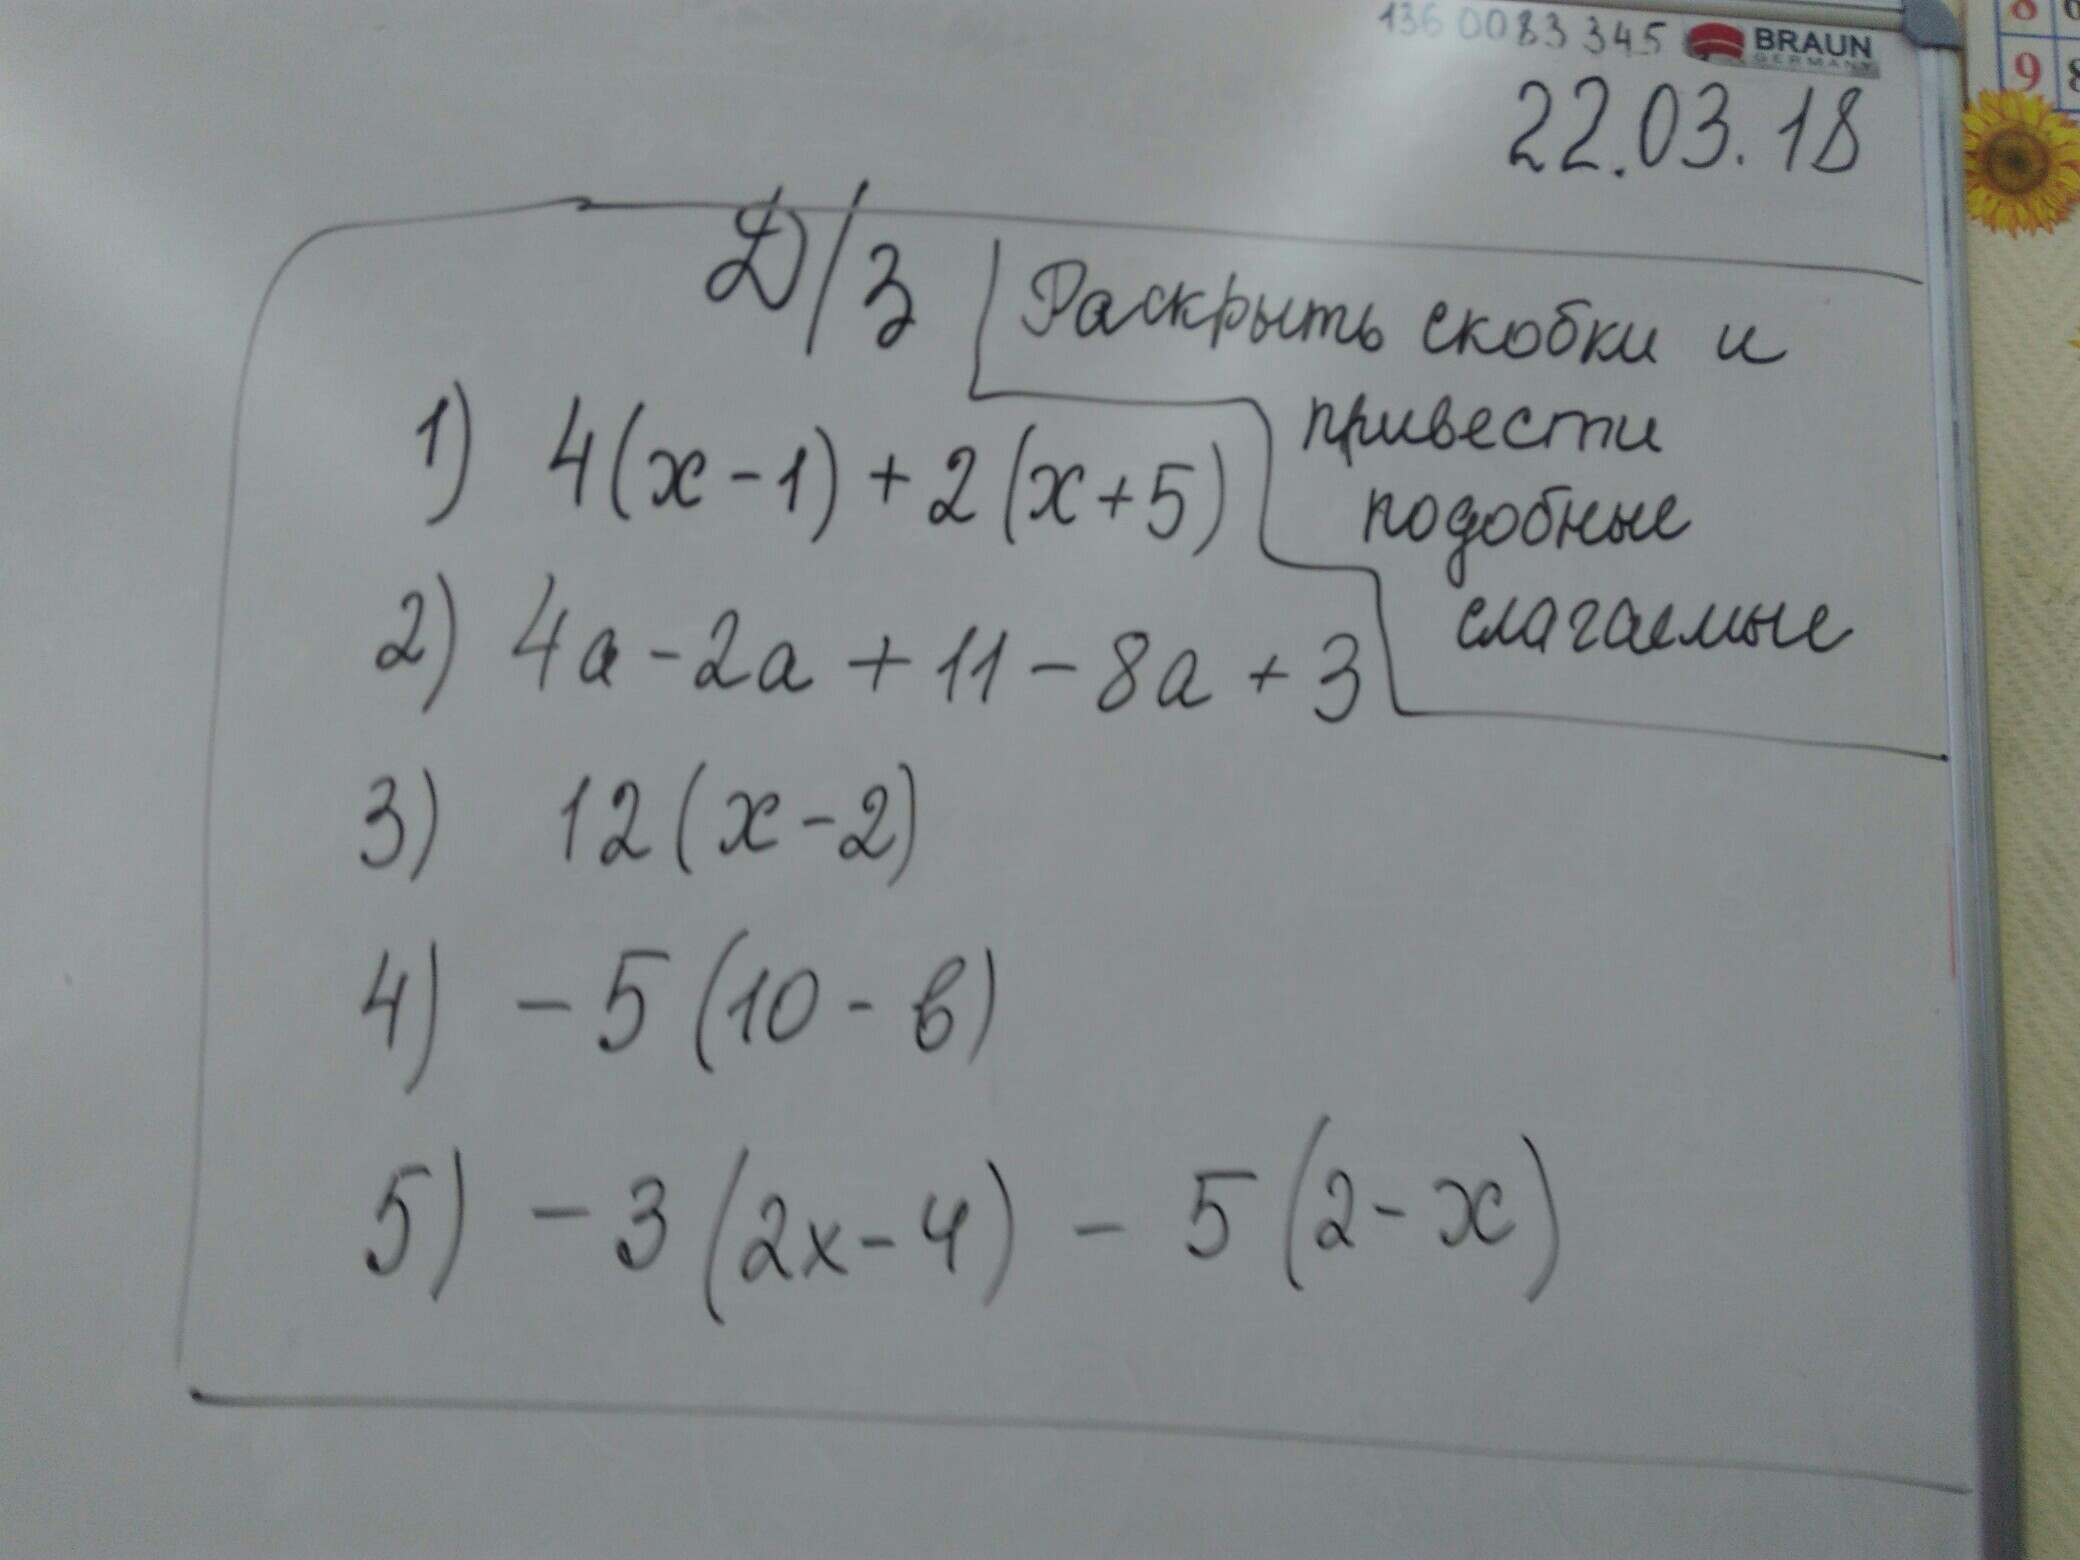 136 0083 345
BRAUN
GERMANY
8 6
9 8
22.03.18
Д/З
Раскрыть скобки и
привести
подобные
слагаемые
1) 4(x-1)+2(x+5)
2) 4a-2a+11-8a+3
3) 12(x-2)
4) -5(10-в)
5) -3(2x-4) - 5(2-x)